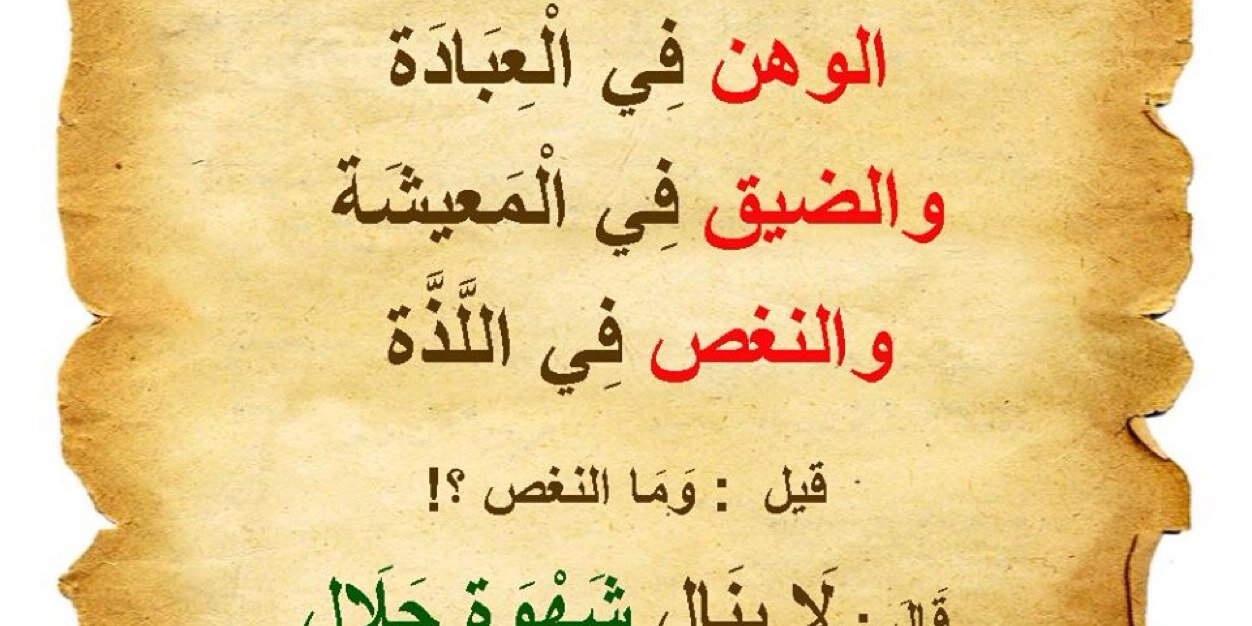 الوهن فِي الْعِبَادَة
والضيق فِي الْمَعيشَة
والنغص فِي اللَّذَّة
قيل : وَمَا النغص ؟!
قَالَ : لَا ينَال شَهْوَة حَلَال